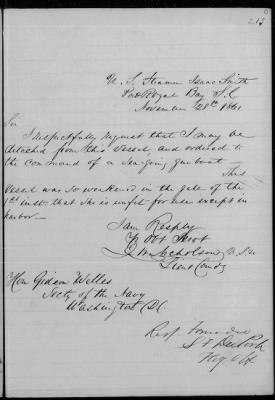 213
U. S. Steamer Isaac Smith
Port Royal Bay S.C
November 28th 1861
Sir
I respectfully request that I may be
detached from this vessel and ordered to
the command of a sea going gunboat This
vessel was so weakened in the gale of the
1st inst: that she is unfit for use except in
harbor
I am Respy
Yr Obt Servt
J W Nicholson U.S.N
Lieut Comdg
Hon Gideon Welles
Secty of the Navy
Washington D.C.
Resp Forwarded
S F DuPont
Flag Off